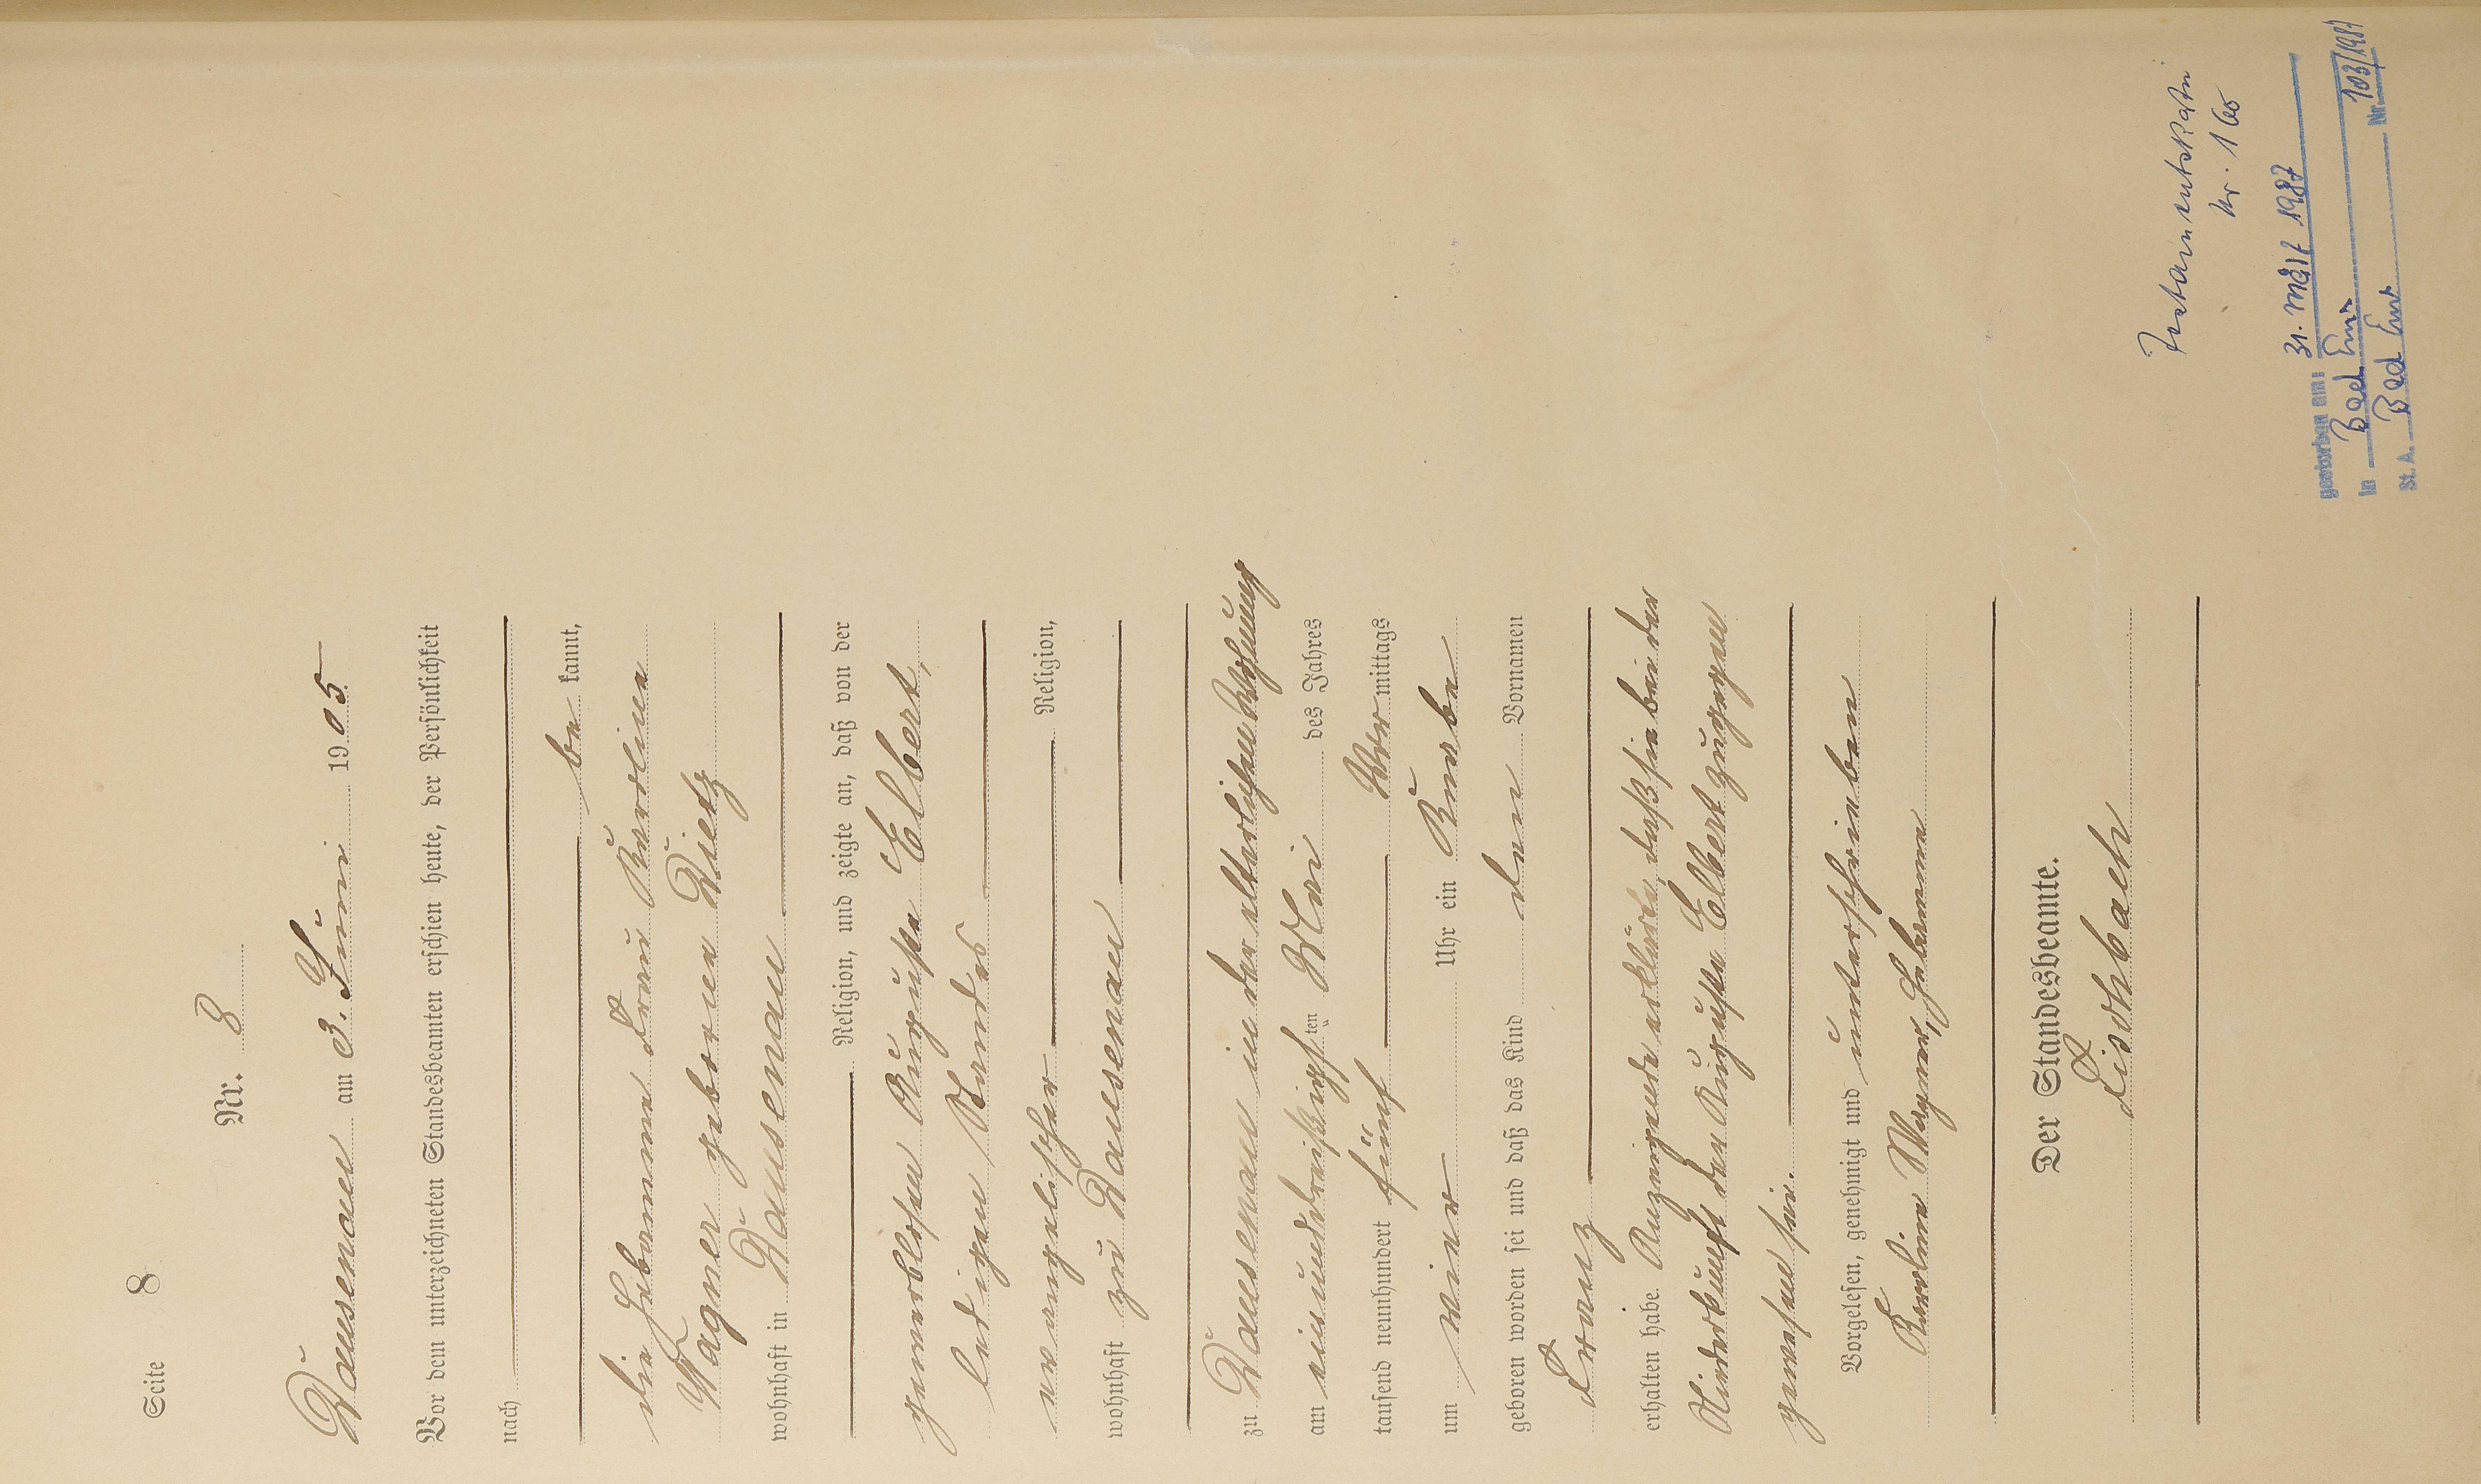 Seite 8
Nr. 8
Dausenau am 3. Juni 1905
Vor dem unterzeichneten Standesbeamten erschien heute, der Persönlichkeit
nach
be kannt,
die Hebamme Frau Karoline
Wagner geborne Dietz
wohnhaft in Dausenau
Religion, und zeigte an, daß von der
gewerblosen Auguste Elbert,
ledigen Standes
evangelischer Religion,
wohnhaft zu Dausenau
zu Dausenau in der elterlichen Wohnung
am einunddreißigsten Mai des Jahres
tausend neunhundert fünf Vormittags
um vier Uhr ein Knabe
geboren worden sei und daß das Kind den Vornamen
Franz
erhalten habe. Anzeigende erklärte, daß sie bei der
Niederkunft der Auguste Elbert zugegen
gewesen sei.
Vorgelesen, genehmigt und unterschrieben
Karoline Wagner, Hebamme
Der Standesbeamte.
Linkbach
Testamentskartei
Nr. 160
gestorben am: 31. März 1987
in Bad Ems
St. A. Bad Ems Nr. 103/1987